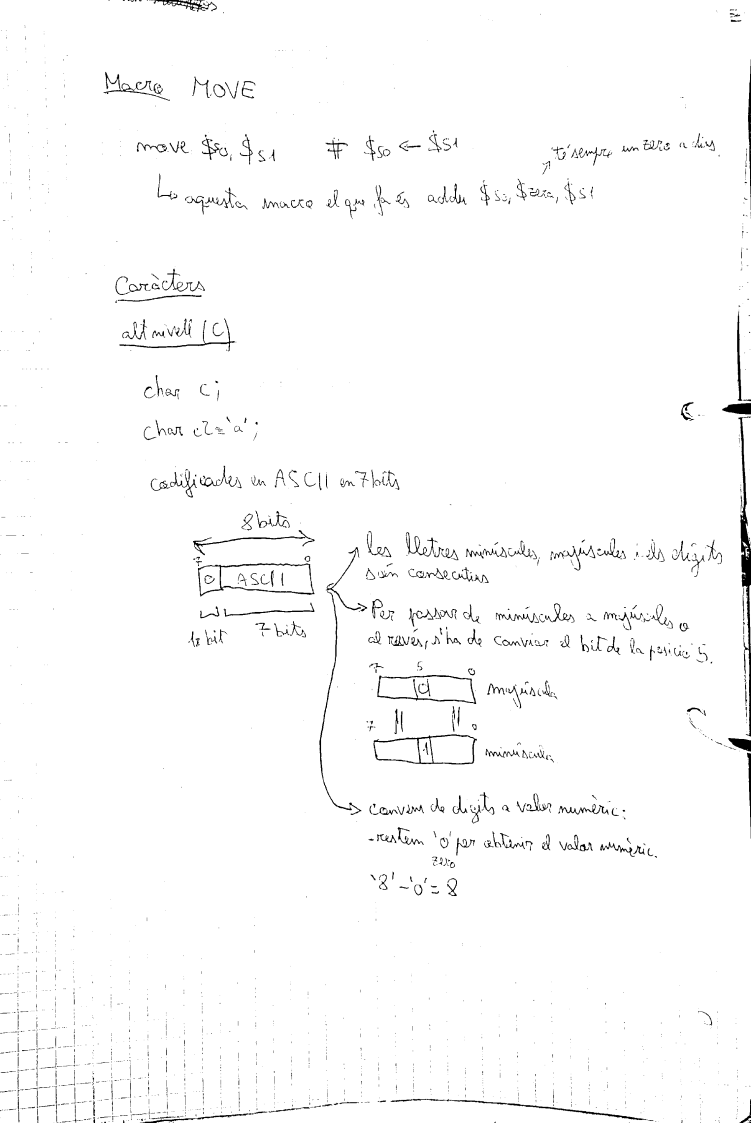 Macro MOVE
move $s0, $s1 # $s0 ← $s1
té sempre un zero a dins
↳ aquesta macro el que fa és addu $s0, $zero, $s1
Caràcters
alt nivell (C)
char c;
char c2='a';
codificades en ASCII en 7 bits
8 bits
7 0
0 ASCII
1 bit 7 bits
les lletres minúscules, majúscules i els dígits
són consecutius
Per passar de minúscules a majúscules o
al revés, s'ha de canviar el bit de la posició 5.
7 5 0
0 majúscula
7 0
1 minúscula
de dígits a valor numèric:
-restem '0' per obtenir el valor numèric.
zero
'8'-'0'=8